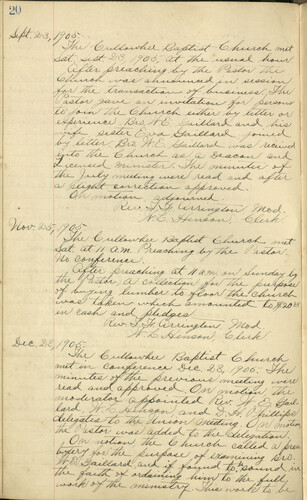 20
Sept. 23, 1905.
The Cullowhee Baptist Church met
Sat. Sept 23, 1905, at the usual hour
After preaching by the Pastor the
Church was announced in session
for the transaction of business. The
Pastor gave an invitation for persons
to join the Church either by letter or
experience Bro. W. E. Gaillard and his
wife sister Eva Gaillard joined
by letter Bro. W. E. Gaillard was received
into the Church as a Deacon and
Licensed Minister. The minutes of
the July meeting were read and after
a slight correction approved.
On motion adjourned
Rev. T. F. Arrington Mod.
N. L. Henson Clerk
Nov. 25, 1905.
The Cullowhee Baptist Church met
Sat. at 11 A.M. Preaching by the Pastor.
No conference.
After preaching at 11 a.m. on Sunday by
the Pastor a collection for the purpose
of buying lumber to floor the Church
was taken which amounted to $20
in cash and pledges
Rev. T. F. Arrington Mod
N. L. Henson Clerk
Dec. 23, 1905.
The Cullowhee Baptist Church
met in conference Dec. 23, 1905. The
minutes of the previous meeting were
read and approved On motion the
moderator appointed Rev. W. E. Gail-
lard N. L. Henson and D. H. Phillips
delegates to the Union Meeting On motion
the Pastor was added to the delegation.
On motion the Church called a pres-
bytery for the purpose of examining Bro.
W. E. Gaillard and if found sound in
the faith of ordaining him to the full
work of the ministry. This work to be